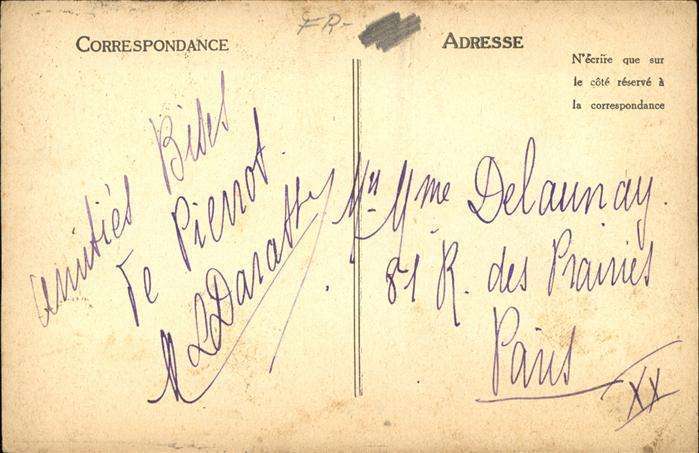 FR-
CORRESPONDANCE
ADRESSE
N'écrire que sur
le côté réservé à
la correspondance
amitiés Bises
de Pierrot
Mr Mme Delaunay.
81 R. des Prairies
Paris
XX